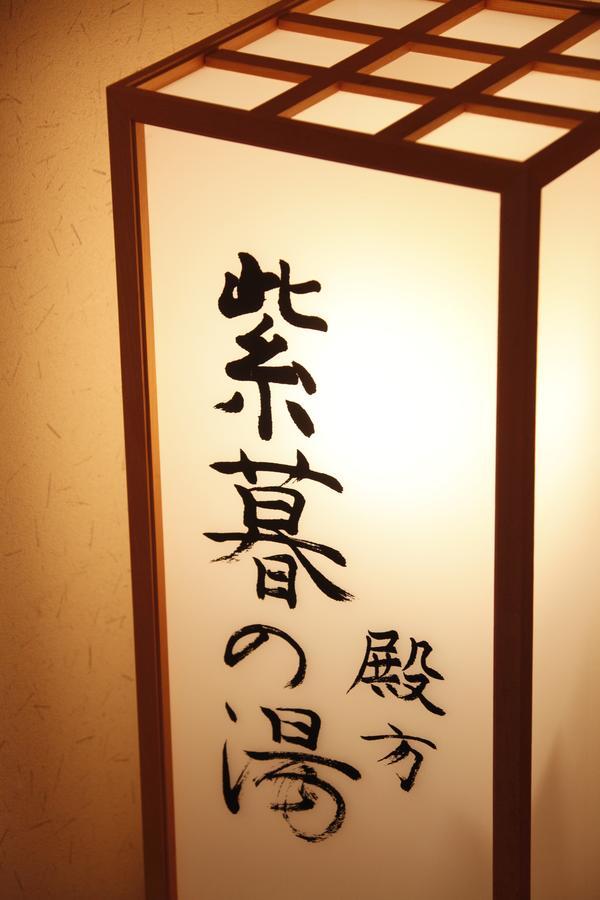 紫暮の湯
殿方